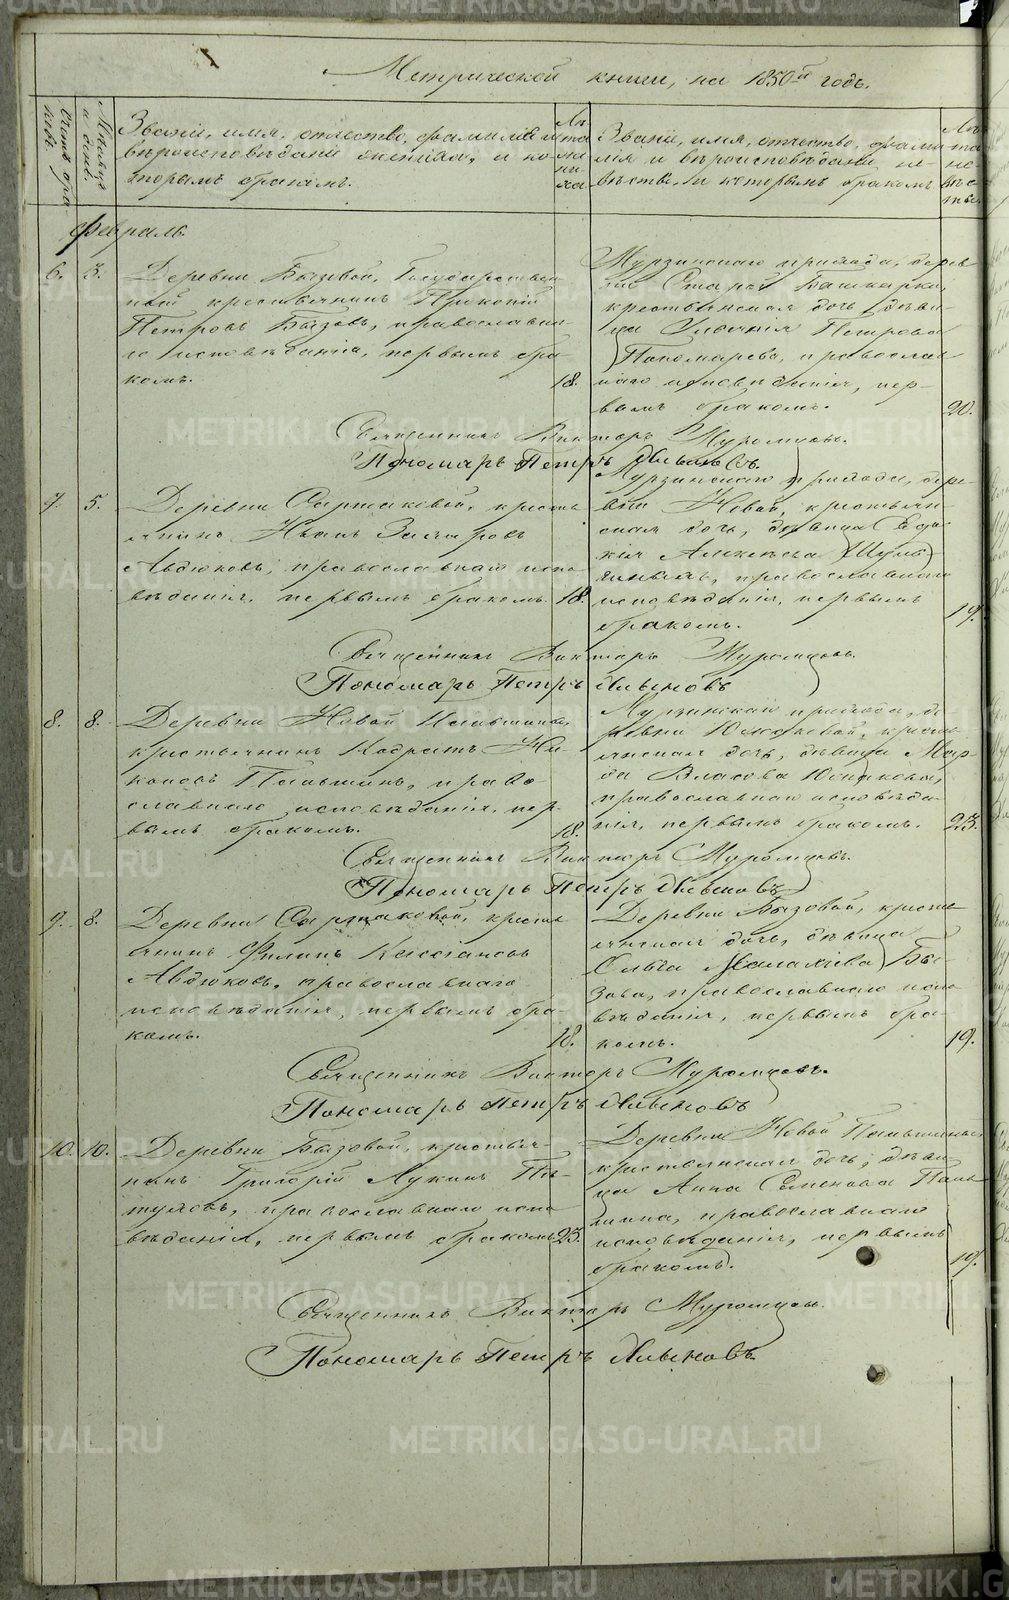 Метрической книги, на 1850й годъ.
Счетъ бра-
ковъ.
Месяцъ
и день.
Званiе, имя, отчество, фамилiя и
вѣроисповѣданiе жениха, и ко-
торымъ бракомъ.
Лѣ-
та
же-
ни-
ха
Званiе, имя, отчество, фами-
лiя и вѣроисповѣданiе не-
вѣсты, и которымъ бракомъ
Лѣ-
та
не-
вѣс-
ты.
Февраль.
6. 3.
Деревни Бызовой, Государствен-
ный крестьянинъ Прокопiй
Петровъ Бызовъ, православна-
го исповѣданiя, первымъ бра-
комъ.
18.
Мурзинскаго прихода, дерев-
ни Старой Башкарки,
крестьянская дочь дѣви-
ца Петрова
Пономарева, православ-
наго исповѣданiя, пер-
вымъ бракомъ.
20.
Священникъ Викторъ Муромцовъ.
Пономарь Петръ Хлыновъ.
7. 5.
Деревни Сартаковой, кресть-
янинъ Иванъ Захаровъ
Авдюковъ, православнаго испо-
вѣданiя, первымъ бракомъ.
18.
Мурзинскаго прихода, дере-
вни Новой, крестьян-
ская дочь, девица Евдо-
кiя Алексѣева
православнаго
исповѣданiя, первымъ
бракомъ.
19.
Священникъ Викторъ Муромцовъ.
Пономарь Петръ Хлыновъ
8. 8.
Деревни Новой Паньшиной,
крестьянинъ Кодратъ Ни-
коновъ Паньшинъ, право-
славнаго исповѣданiя, пер-
вымъ бракомъ.
18.
прихода, де-
ревни Южаковой, кресть-
янская дочь, дѣвица
Власова Южакова,
православнаго исповѣда-
нiя, первымъ бракомъ.
23.
Священникъ Викторъ Муромцовъ.
Пономарь Петръ Хлыновъ
9. 8.
Деревни Сартаковой, кресть-
янинъ Филипъ Кассiановъ
Авдюковъ, православнаго
исповѣданiя, первымъ бра-
комъ.
18.
Деревни Бызовой, кресть-
янская дочь, дѣвица
Ольга Малахiева Бы-
зова, православнаго испо-
вѣданiя, первымъ бра-
комъ.
19.
Священникъ Викторъ Муромцовъ.
Пономарь Петръ Хлыновъ
10. 10.
Деревни Бызовой, крестья-
нинъ Григорiй Лукинъ Пѣ-
туховъ, православнаго испо-
вѣданiя, первымъ бракомъ.
23.
Деревни Новой Паньшиной,
крестьянская дочь, дѣви-
ца Анна Семенова Пань-
шина, православнаго
исповѣданiя, первымъ
бракомъ.
19.
Священникъ Викторъ Муромцовъ.
Пономарь Петръ Хлыновъ.
METRIKI.GASO-URAL.RU